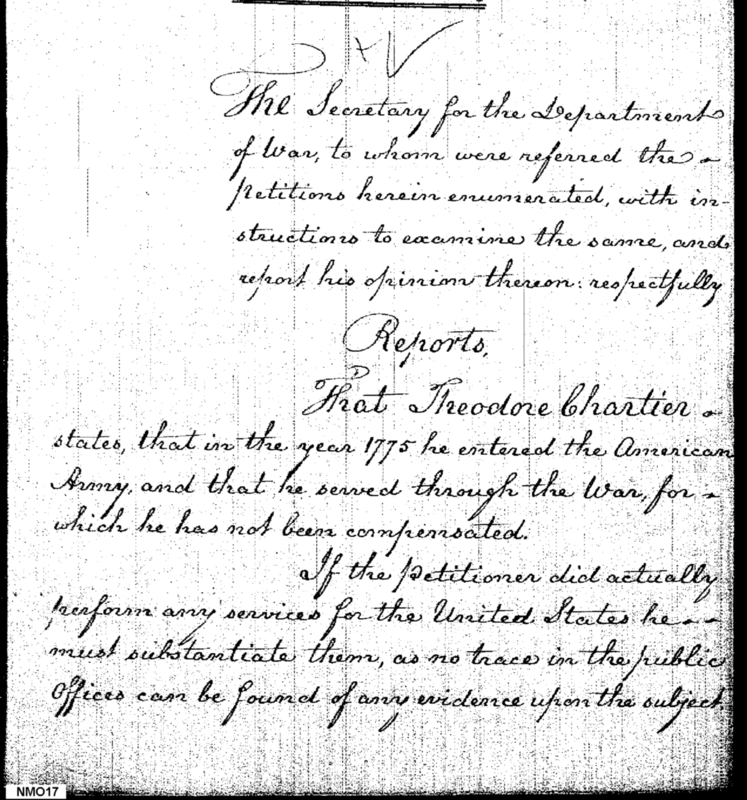 The Secretary for the Department
of War, to whom were referred the -
petitions herein enumerated, with in-
structions to examine the same, and
report his opinion thereon: respectfully
Reports,
That Theodore Chartier -
states, that in the year 1775 he entered the American
Army, and that he served through the War, for -
which he has not been compensated.
If the petitioner did actually
perform any services for the United States he - -
must substantiate them, as no trace in the public
Offices can be found of any evidence upon the subject
NMO17